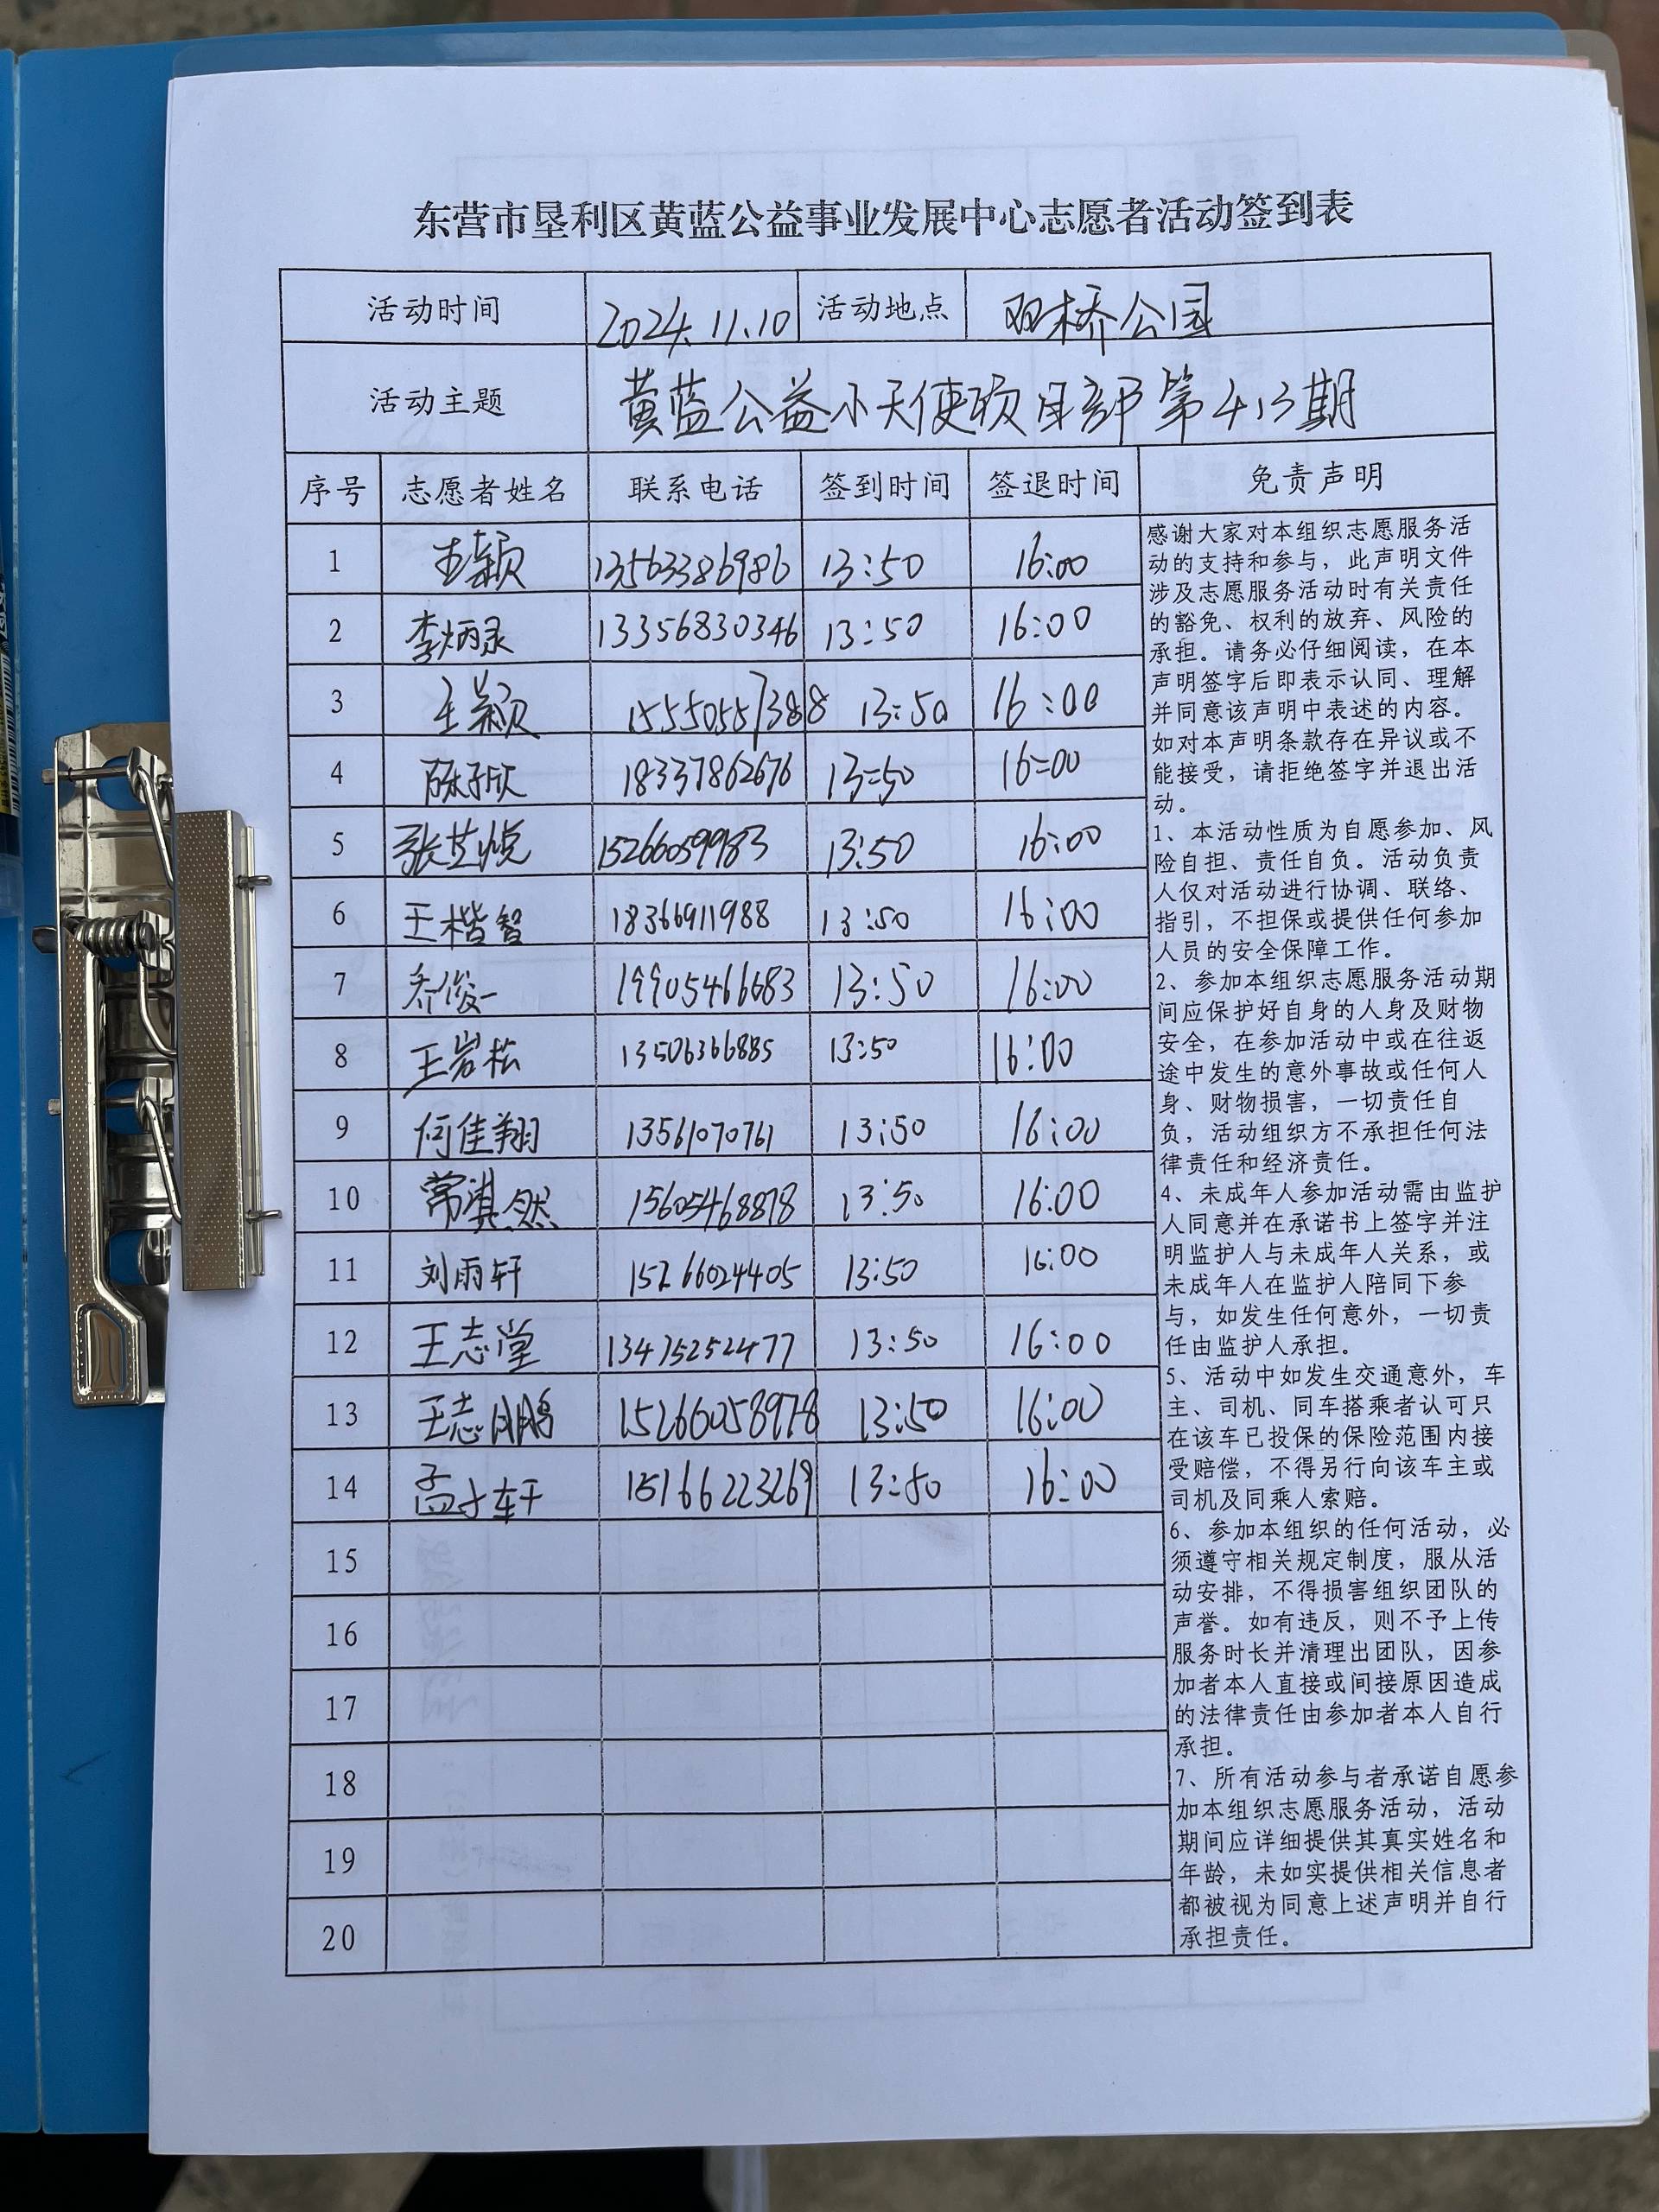 东营市垦利区黄蓝公益事业发展中心志愿者活动签到表
活动时间 2024.11.10 活动地点 双桥公园
活动主题 黄蓝公益小天使项目部第413期
序号 志愿者姓名 联系电话 签到时间 签退时间 免责声明
1 王颖 13563386986 13:50 16:00
2 李炳录 13356830346 13:50 16:00
3 王颖 15550557388 13:50 16:00
4 陈子欣 18337862676 13:50 16:00
5 张芝悦 15266059983 13:50 16:00
6 王楷智 18366911988 13:50 16:00
7 乔俊一 19905466683 13:50 16:00
8 王岩松 13506366885 13:50 16:00
9 何佳翔 13561070761 13:50 16:00
10 常淇然 15605468878 13:50 16:00
11 刘雨轩 15266024405 13:50 16:00
12 王志堂 13475252477 13:50 16:00
13 王志鹏 15266058978 13:50 16:00
14 孟子轩 15166223269 13:50 16:00
15
16
17
18
19
20
感谢大家对本组织志愿服务活
动的支持和参与，此声明文件
涉及志愿服务活动时有关责任
的豁免、权利的放弃、风险的
承担。请务必仔细阅读，在本
声明签字后即表示认同、理解
并同意该声明中表述的内容。
如对本声明条款存在异议或不
能接受，请拒绝签字并退出活
动。
1、本活动性质为自愿参加、风
险自担、责任自负。活动负责
人仅对活动进行协调、联络、
指引，不担保或提供任何参加
人员的安全保障工作。
2、参加本组织志愿服务活动期
间应保护好自身的人身及财物
安全，在参加活动中或在往返
途中发生的意外事故或任何人
身、财物损害，一切责任自
负，活动组织方不承担任何法
律责任和经济责任。
4、未成年人参加活动需由监护
人同意并在承诺书上签字并注
明监护人与未成年人关系，或
未成年人在监护人陪同下参
与，如发生任何意外，一切责
任由监护人承担。
5、活动中如发生交通意外，车
主、司机、同车搭乘者认可只
在该车已投保的保险范围内接
受赔偿，不得另行向该车主或
司机及同乘人索赔。
6、参加本组织的任何活动，必
须遵守相关规定制度，服从活
动安排，不得损害组织团队的
声誉。如有违反，则不予上传
服务时长并清理出团队，因参
加者本人直接或间接原因造成
的法律责任由参加者本人自行
承担。
7、所有活动参与者承诺自愿参
加本组织志愿服务活动，活动
期间应详细提供其真实姓名和
年龄，未如实提供相关信息者
都被视为同意上述声明并自行
承担责任。